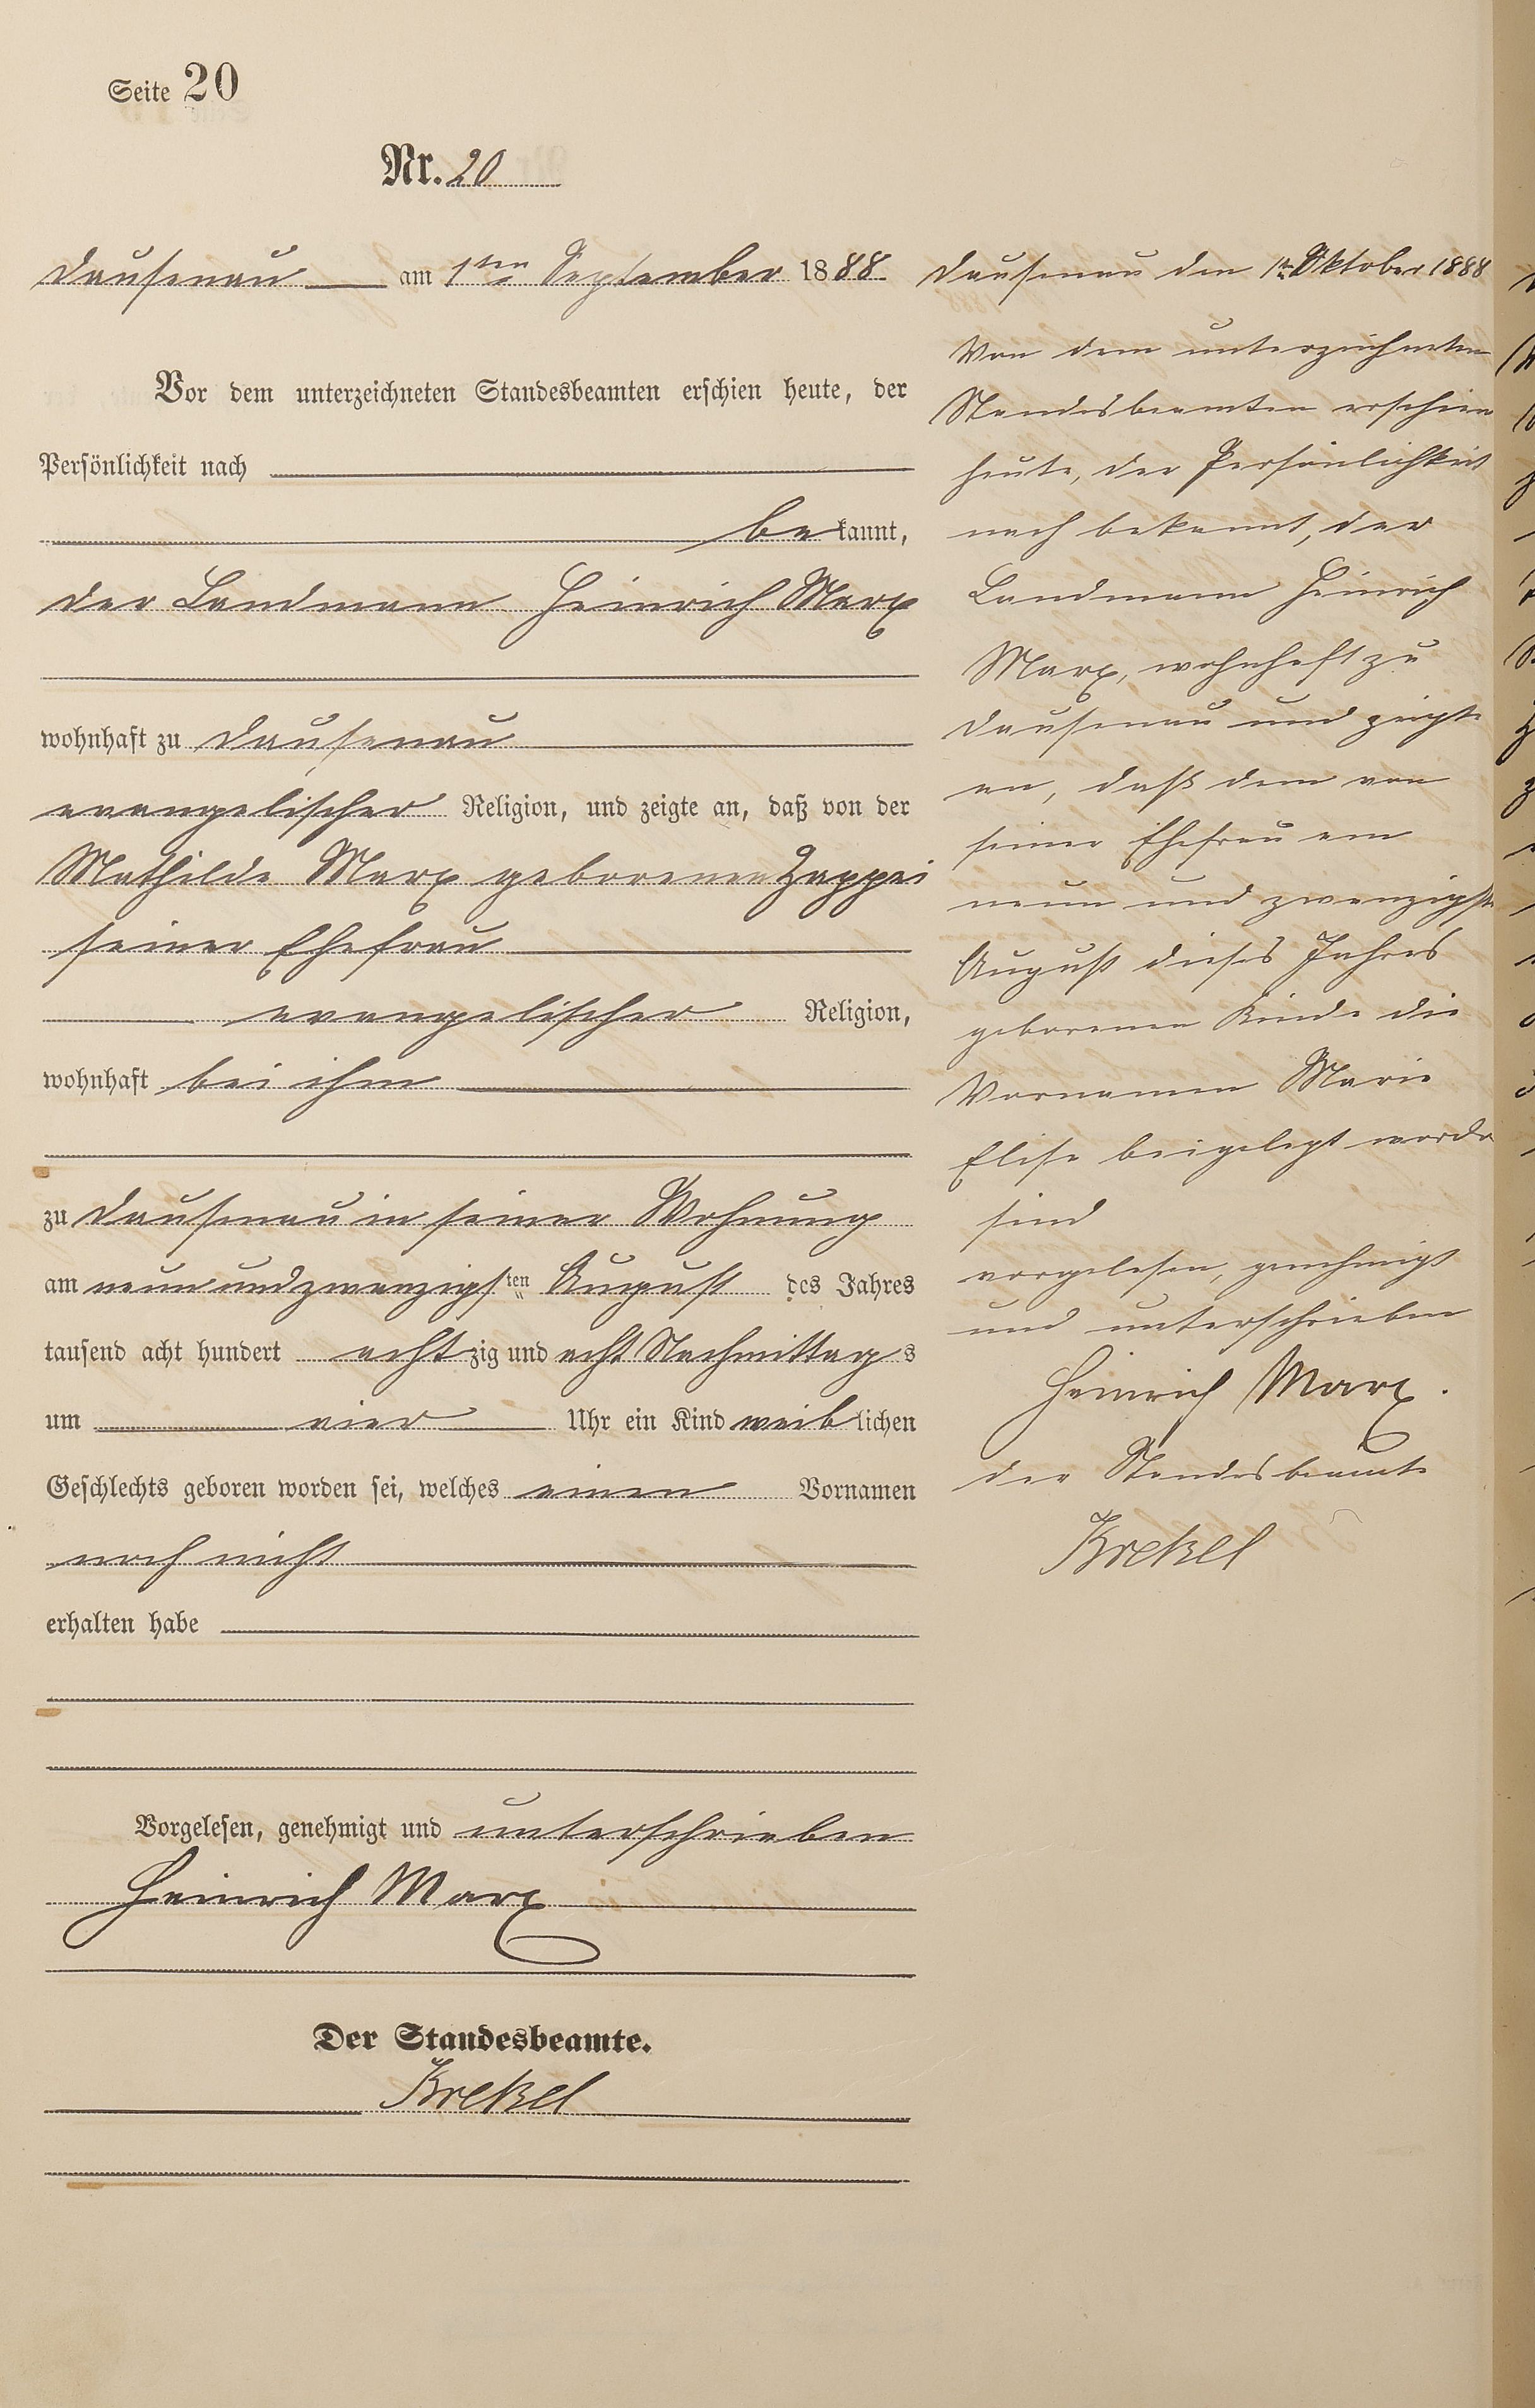 Seite 20
Nr. 20
Dausenau am 1ten September 1888
Vor dem unterzeichneten Standesbeamten erschien heute, der
Persönlichkeit nach
bekannt,
der Landmann Heinrich Marx
wohnhaft zu Dausenau
evangelischer Religion, und zeigte an, daß von der
Mathilde Marx geborenen Zappei
seiner Ehefrau
evangelischer Religion,
wohnhaft bei ihm
zu Dausenau in seiner Wohnung
am neunundzwanzigsten August des Jahres
tausend acht hundert achtzig und acht Nachmittags
um vier Uhr ein Kind weiblichen
Geschlechts geboren worden sei, welches einen Vornamen
noch nicht
erhalten habe
Vorgelesen, genehmigt und unterschrieben
Heinrich Marx
Der Standesbeamte.
Krekel
Dausenau den 1t. Oktober 1888
Von dem unterzeichneten
Standesbeamten erschien
heute, der Persönlichkeit
nach bekannt, der
Landmann Heinrich
Marx, wohnhaft zu
Dausenau und zeigte
an, daß dem von
seiner Ehefrau am
neun und zwanzigste
August dieses Jahres
geborenen Kinde die
Vornamen Marie
Elise beigelegt worde
sind
vorgelesen, genehmigt
und unterschrieben
Heinrich Marx.
der Standesbeamte
Krekel